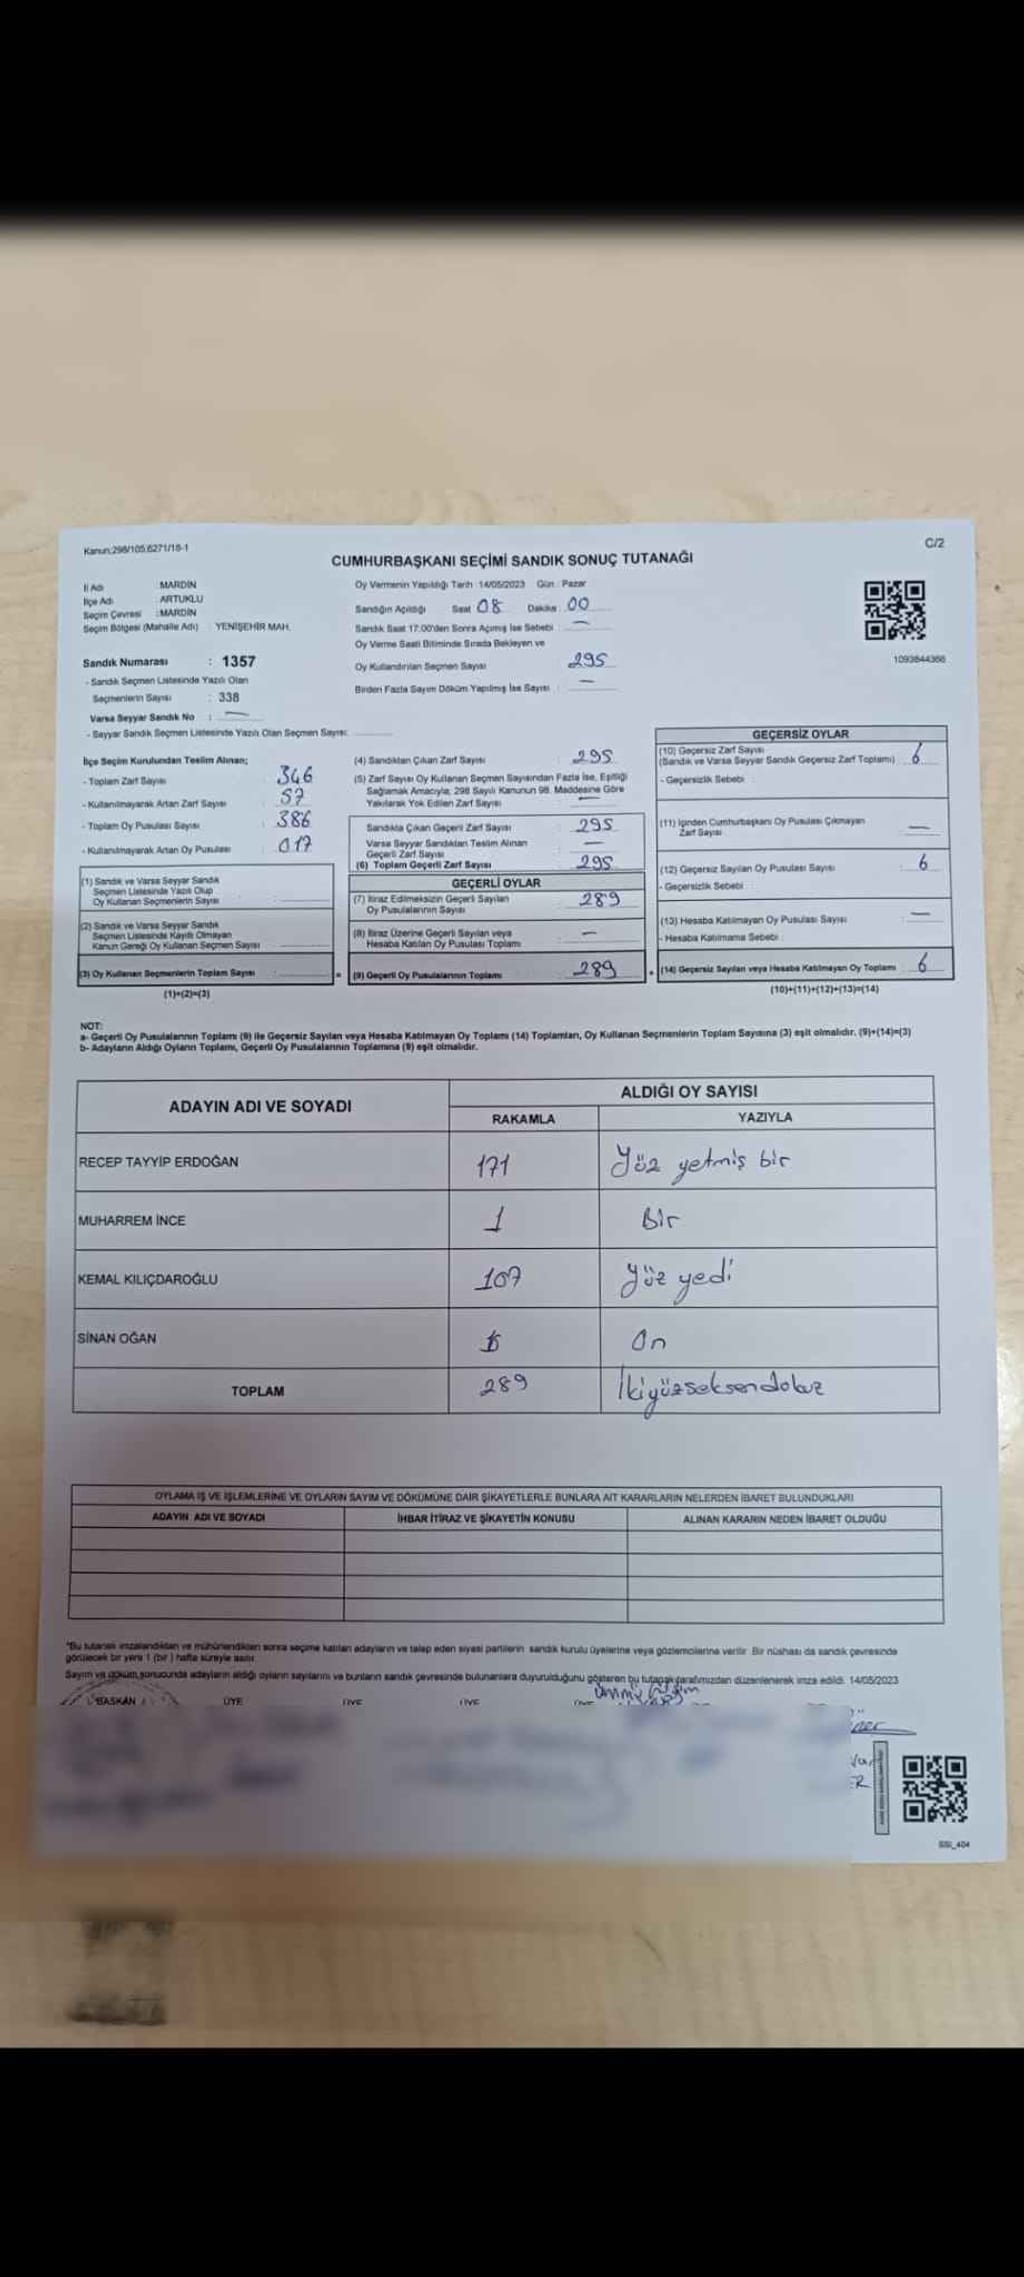 Kanun:298/105,6271/18-1
C/2
CUMHURBAŞKANI SEÇİMİ SANDIK SONUÇ TUTANAĞI
İl Adı : MARDİN
İlçe Adı : ARTUKLU
Seçim Çevresi : MARDİN
Seçim Bölgesi (Mahalle Adı) : YENİŞEHİR MAH.
Sandık Numarası : 1357
- Sandık Seçmen Listesinde Yazılı Olan
Seçmenlerin Sayısı : 338
Varsa Seyyar Sandık No : —
- Seyyar Sandık Seçmen Listesinde Yazılı Olan Seçmen Sayısı:
Oy Vermenin Yapıldığı Tarih : 14/05/2023 Gün : Pazar
Sandığın Açıldığı Saat 08 Dakika : 00
Sandık Saat 17:00'den Sonra Açımış İse Sebebi : —
Oy Verme Saati Bitiminde Sırada Bekleyen ve
Oy Kullandırılan Seçmen Sayısı : 295
Birden Fazla Sayım Döküm Yapılmış İse Sayısı : —
1093844366
İlçe Seçim Kurulundan Teslim Alınan;
- Toplam Zarf Sayısı : 346
- Kullanılmayarak Artan Zarf Sayısı : 57
- Toplam Oy Pusulası Sayısı : 386
- Kullanılmayarak Artan Oy Pusulası : 017
(1) Sandık ve Varsa Seyyar Sandık
Seçmen Listesinde Yazılı Olup
Oy Kullanan Seçmenlerin Sayısı :
(2) Sandık ve Varsa Seyyar Sandık
Seçmen Listesinde Kayıtlı Olmayan
Kanun Gereği Oy Kullanan Seçmen Sayısı :
(3) Oy Kullanan Seçmenlerin Toplam Sayısı :
(1)+(2)=(3)
(4) Sandıktan Çıkan Zarf Sayısı : 295
(5) Zarf Sayısı Oy Kullanan Seçmen Sayısından Fazla İse, Eşitliği
Sağlamak Amacıyla; 298 Sayılı Kanunun 98. Maddesine Göre
Yakılarak Yok Edilen Zarf Sayısı : —
Sandıkta Çıkan Geçerli Zarf Sayısı : 295
Varsa Seyyar Sandıktan Teslim Alınan
Geçerli Zarf Sayısı : —
(6) Toplam Geçerli Zarf Sayısı : 295
GEÇERLİ OYLAR
(7) İtiraz Edilmeksizin Geçerli Sayılan
Oy Pusulalarının Sayısı : 289
(8) İtiraz Üzerine Geçerli Sayılan veya
Hesaba Katılan Oy Pusulası Toplamı : —
= (9) Geçerli Oy Pusulalarının Toplamı : 289
GEÇERSİZ OYLAR
(10) Geçersiz Zarf Sayısı
(Sandık ve Varsa Seyyar Sandık Geçersiz Zarf Toplamı) : 6
- Geçersizlik Sebebi :
(11) İçinden Cumhurbaşkanı Oy Pusulası Çıkmayan
Zarf Sayısı : —
(12) Geçersiz Sayılan Oy Pusulası Sayısı : 6
- Geçersizlik Sebebi :
(13) Hesaba Katılmayan Oy Pusulası Sayısı : —
- Hesaba Katılmama Sebebi :
+ (14) Geçersiz Sayılan veya Hesaba Katılmayan Oy Toplamı : 6
(10)+(11)+(12)+(13)=(14)
NOT:
a- Geçerli Oy Pusulalarının Toplamı (9) ile Geçersiz Sayılan veya Hesaba Katılmayan Oy Toplamı (14) Toplamları, Oy Kullanan Seçmenlerin Toplam Sayısına (3) eşit olmalıdır. (9)+(14)=(3)
b- Adayların Aldığı Oyların Toplamı, Geçerli Oy Pusulalarının Toplamına (9) eşit olmalıdır.
ADAYIN ADI VE SOYADI
ALDIĞI OY SAYISI
RAKAMLA YAZIYLA
RECEP TAYYİP ERDOĞAN 171 Yüz yetmiş bir
MUHARREM İNCE 1 Bir
KEMAL KILIÇDAROĞLU 107 Yüz yedi
SİNAN OĞAN On
TOPLAM 289 İkiyüzseksendokuz
OYLAMA İŞ VE İŞLEMLERİNE VE OYLARIN SAYIM VE DÖKÜMÜNE DAİR ŞİKAYETLERLE BUNLARA AİT KARARLARIN NELERDEN İBARET BULUNDUKLARI
ADAYIN ADI VE SOYADI İHBAR İTİRAZ VE ŞİKAYETİN KONUSU ALINAN KARARIN NEDEN İBARET OLDUĞU
*Bu tutanak imzalandıktan ve mühürlendikten sonra seçime katılan adayların ve talep eden siyasi partilerin sandık kurulu üyelerine veya gözlemcilerine verilir. Bir nüshası da sandık çevresinde
görülecek bir yere 1 (bir) hafta süreyle asılır.
Sayım ve döküm sonucunda adayların aldığı oyların sayılarını ve bunların sandık çevresinde bulunanlara duyurulduğunu gösteren bu tutanak tarafımızdan düzenlenerek imza edildi. 14/05/2023
BAŞKAN ÜYE ÜYE ÜYE ÜYE
SSI_404